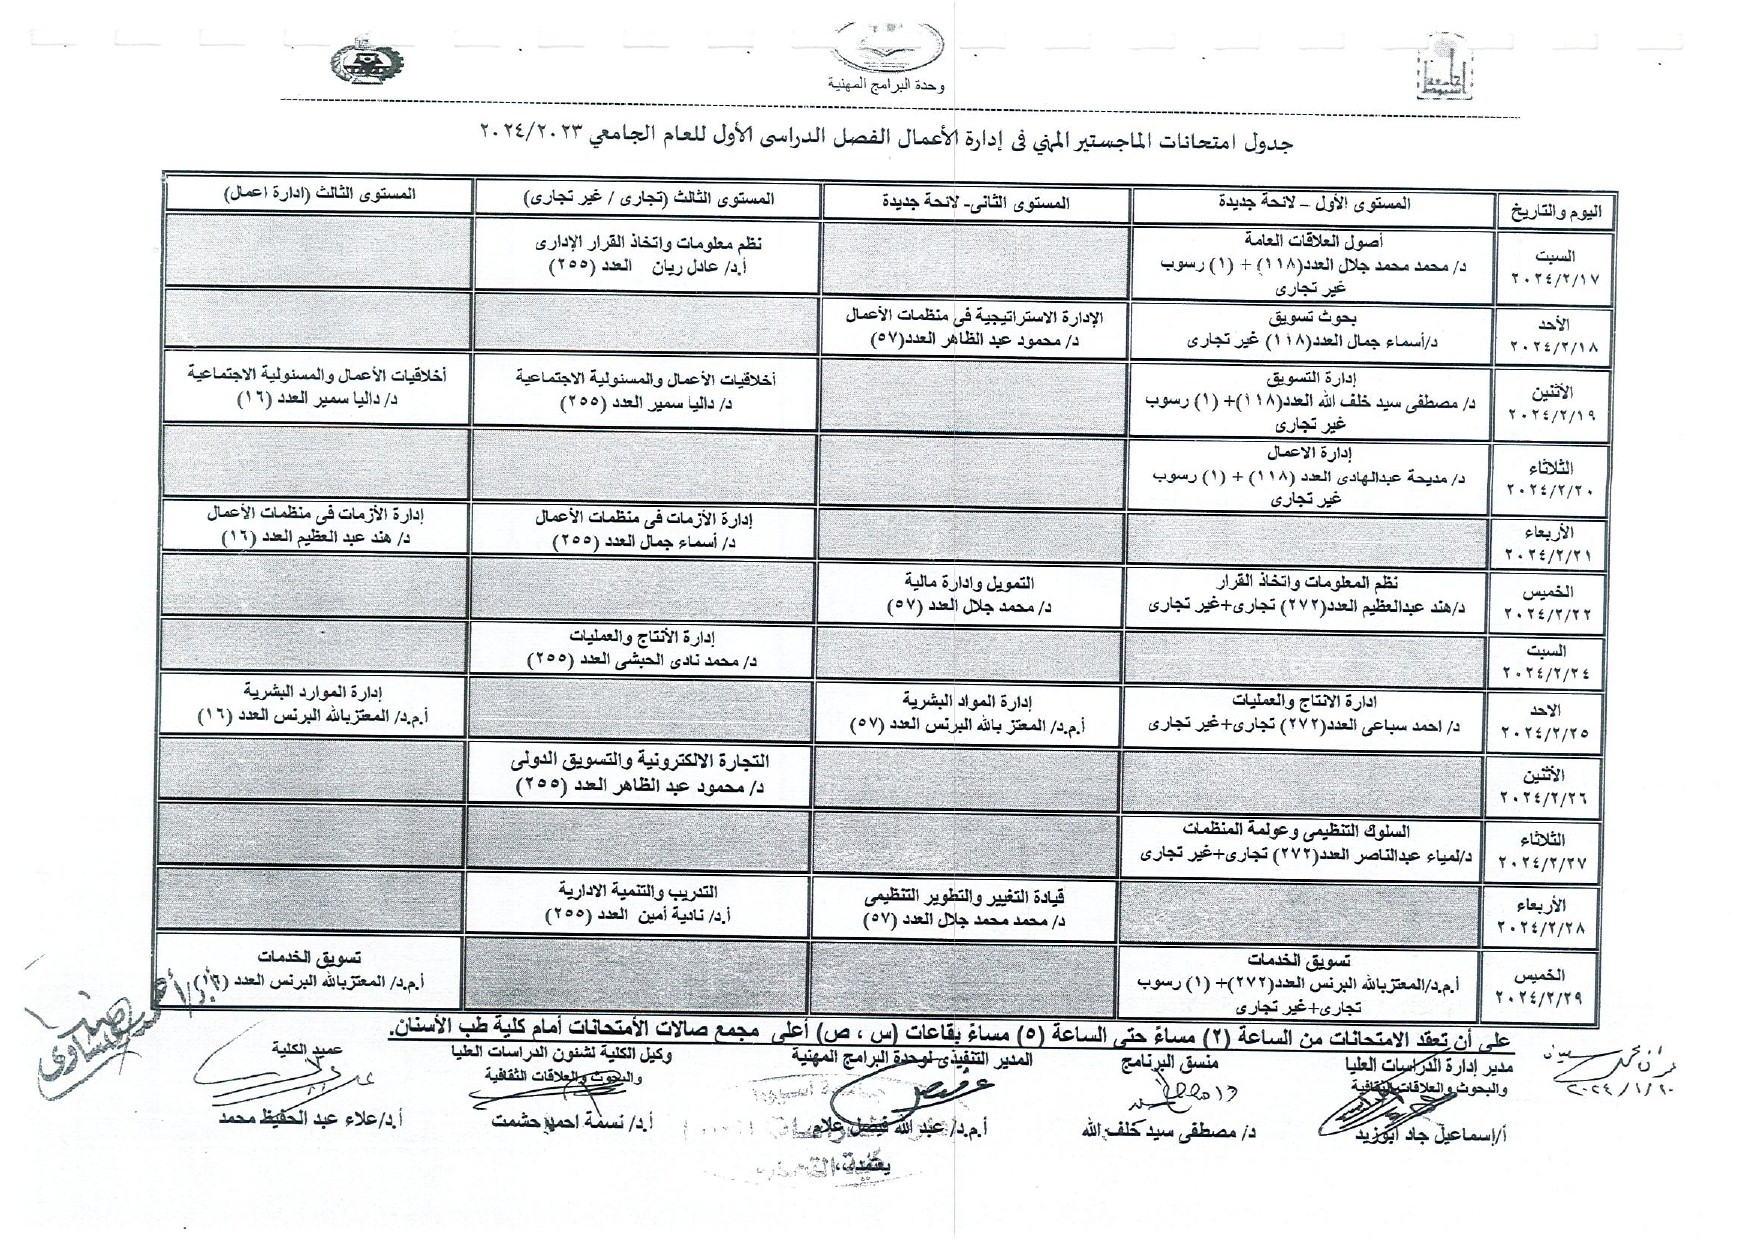 جامعة أسيوط
وحدة البرامج المهنية
جدول امتحانات الماجستير المهني فى إدارة الأعمال الفصل الدراسى الأول للعام الجامعي ٢٠٢٤/٢٠٢٣
اليوم والتاريخ
المستوى الأول – لائحة جديدة
المستوى الثانى- لائحة جديدة
المستوى الثالث (تجارى / غير تجارى)
المستوى الثالث (ادارة اعمال)
السبت
٢٠٢٤/٢/١٧
أصول العلاقات العامة
د/ محمد محمد جلال العدد(١١٨) + (١) رسوب
غير تجارى
نظم معلومات واتخاذ القرار الإدارى
أ.د/ عادل ريان العدد (٢٥٥)
الأحد
٢٠٢٤/٢/١٨
بحوث تسويق
د/أسماء جمال العدد(١١٨) غير تجارى
الإدارة الاستراتيجية فى منظمات الأعمال
د/ محمود عبد الظاهر العدد(٥٧)
الأثنين
٢٠٢٤/٢/١٩
إدارة التسويق
د/ مصطفى سيد خلف الله العدد(١١٨)+ (١) رسوب
غير تجارى
أخلاقيات الأعمال والمسئولية الاجتماعية
د/ داليا سمير العدد (٢٥٥)
أخلاقيات الأعمال والمسئولية الاجتماعية
د/ داليا سمير العدد (١٦)
الثلاثاء
٢٠٢٤/٢/٢٠
إدارة الاعمال
د/ مديحة عبدالهادى العدد (١١٨) + (١) رسوب
غير تجارى
الأربعاء
٢٠٢٤/٢/٢١
إدارة الأزمات فى منظمات الأعمال
د/ أسماء جمال العدد (٢٥٥)
إدارة الأزمات فى منظمات الأعمال
د/ هند عبد العظيم العدد (١٦)
الخميس
٢٠٢٤/٢/٢٢
نظم المعلومات واتخاذ القرار
د/هند عبدالعظيم العدد(٢٧٢) تجارى+غير تجارى
التمويل وادارة مالية
د/ محمد جلال العدد (٥٧)
السبت
٢٠٢٤/٢/٢٤
إدارة الأنتاج والعمليات
د/ محمد نادى الحبشى العدد (٢٥٥)
الاحد
٢٠٢٤/٢/٢٥
ادارة الانتاج والعمليات
د/ احمد سباعى العدد(٢٧٢) تجارى+غير تجارى
إدارة المواد البشرية
أ.م.د/ المعتز بالله البرنس العدد (٥٧)
إدارة الموارد البشرية
أ.م.د/ المعتزبالله البرنس العدد (١٦)
الأثنين
٢٠٢٤/٢/٢٦
التجارة الالكترونية والتسويق الدولى
د/ محمود عبد الظاهر العدد (٢٥٥)
الثلاثاء
٢٠٢٤/٢/٢٧
السلوك التنظيمى وعولمة المنظمات
د/لمياء عبدالناصر العدد(٢٧٢) تجارى+غير تجارى
الأربعاء
٢٠٢٤/٢/٢٨
قيادة التغيير والتطوير التنظيمى
د/ محمد محمد جلال العدد (٥٧)
التدريب والتنمية الادارية
أ.د/ نادية أمين العدد (٢٥٥)
الخميس
٢٠٢٤/٢/٢٩
تسويق الخدمات
أ.م.د/المعتزبالله البرنس العدد(٢٧٢)+ (١) رسوب
تجارى+غير تجارى
تسويق الخدمات
أ.م.د/ المعتزبالله البرنس العدد
على أن تعقد الامتحانات من الساعة (٢) مساءً حتى الساعة (٥) مساءً بقاعات (س ، ص) أعلى مجمع صالات الأمتحانات أمام كلية طب الأسنان.
مدير إدارة الدراسات العليا
والبحوث والعلاقات الثقافية
أ/إسماعيل جاد ابوزيد
منسق البرنامج
د/ مصطفى سيد خلف الله
المدير التنفيذى لوحدة البرامج المهنية
أ.م.د/ عبد الله فيصل علام
وكيل الكلية لشئون الدراسات العليا
والبحوث والعلاقات الثقافية
أ.د/ نسمة احمد حشمت
عميد الكلية
أ.د/علاء عبد الحفيظ محمد
٢٠٢٤/١/٢٠
يعتمد،،